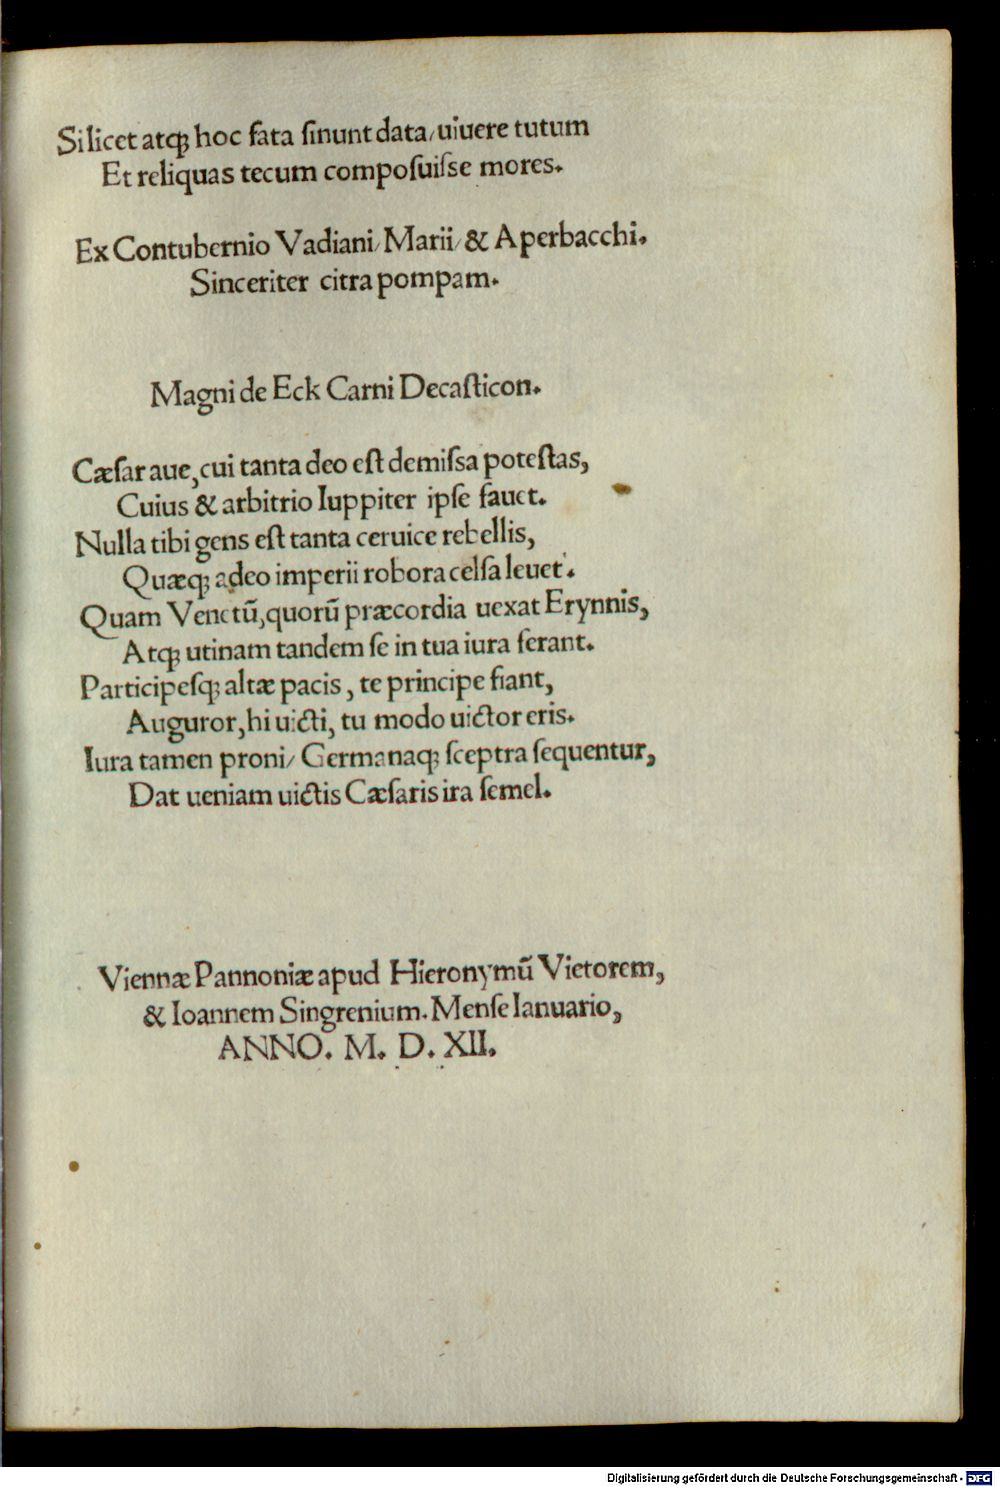 Si licet atqꝫ hoc fata ſinunt data/uiuere tutum
Et reliquas tecum compoſuiſse mores.
Ex Contubernio Vadiani/Marii/& Aperbacchi.
Sinceriter citra pompam.
Magni de Eck Carni Decaſticon.
Cæſar aue,cui tanta deo eſt demiſsa poteſtas,
Cuius & arbitrio Iuppiter ipſe fauet.
Nulla tibi gens eſt tanta ceruice rebellis,
Quæqꝫ adeo imperii robora celſa leuet.
Quam Venetū,quorū præcordia uexat Erynnis,
Atqꝫ utinam tandem ſe in tua iura ferant.
Participeſqꝫ altæ pacis, te principe fiant,
Auguror,hi uicti, tu modo uictor eris.
Iura tamen proni/ Germanaqꝫ ſceptra ſequentur,
Dat ueniam uictis Cæſaris ira ſemel.
Viennæ Pannoniæ apud Hieronymū Vietorem,
& Ioannem Singrenium. Menſe Ianuario,
ANNO. M. D. XII.
Digitalisierung gefördert durch die Deutsche Forschungsgemeinschaft - DFG